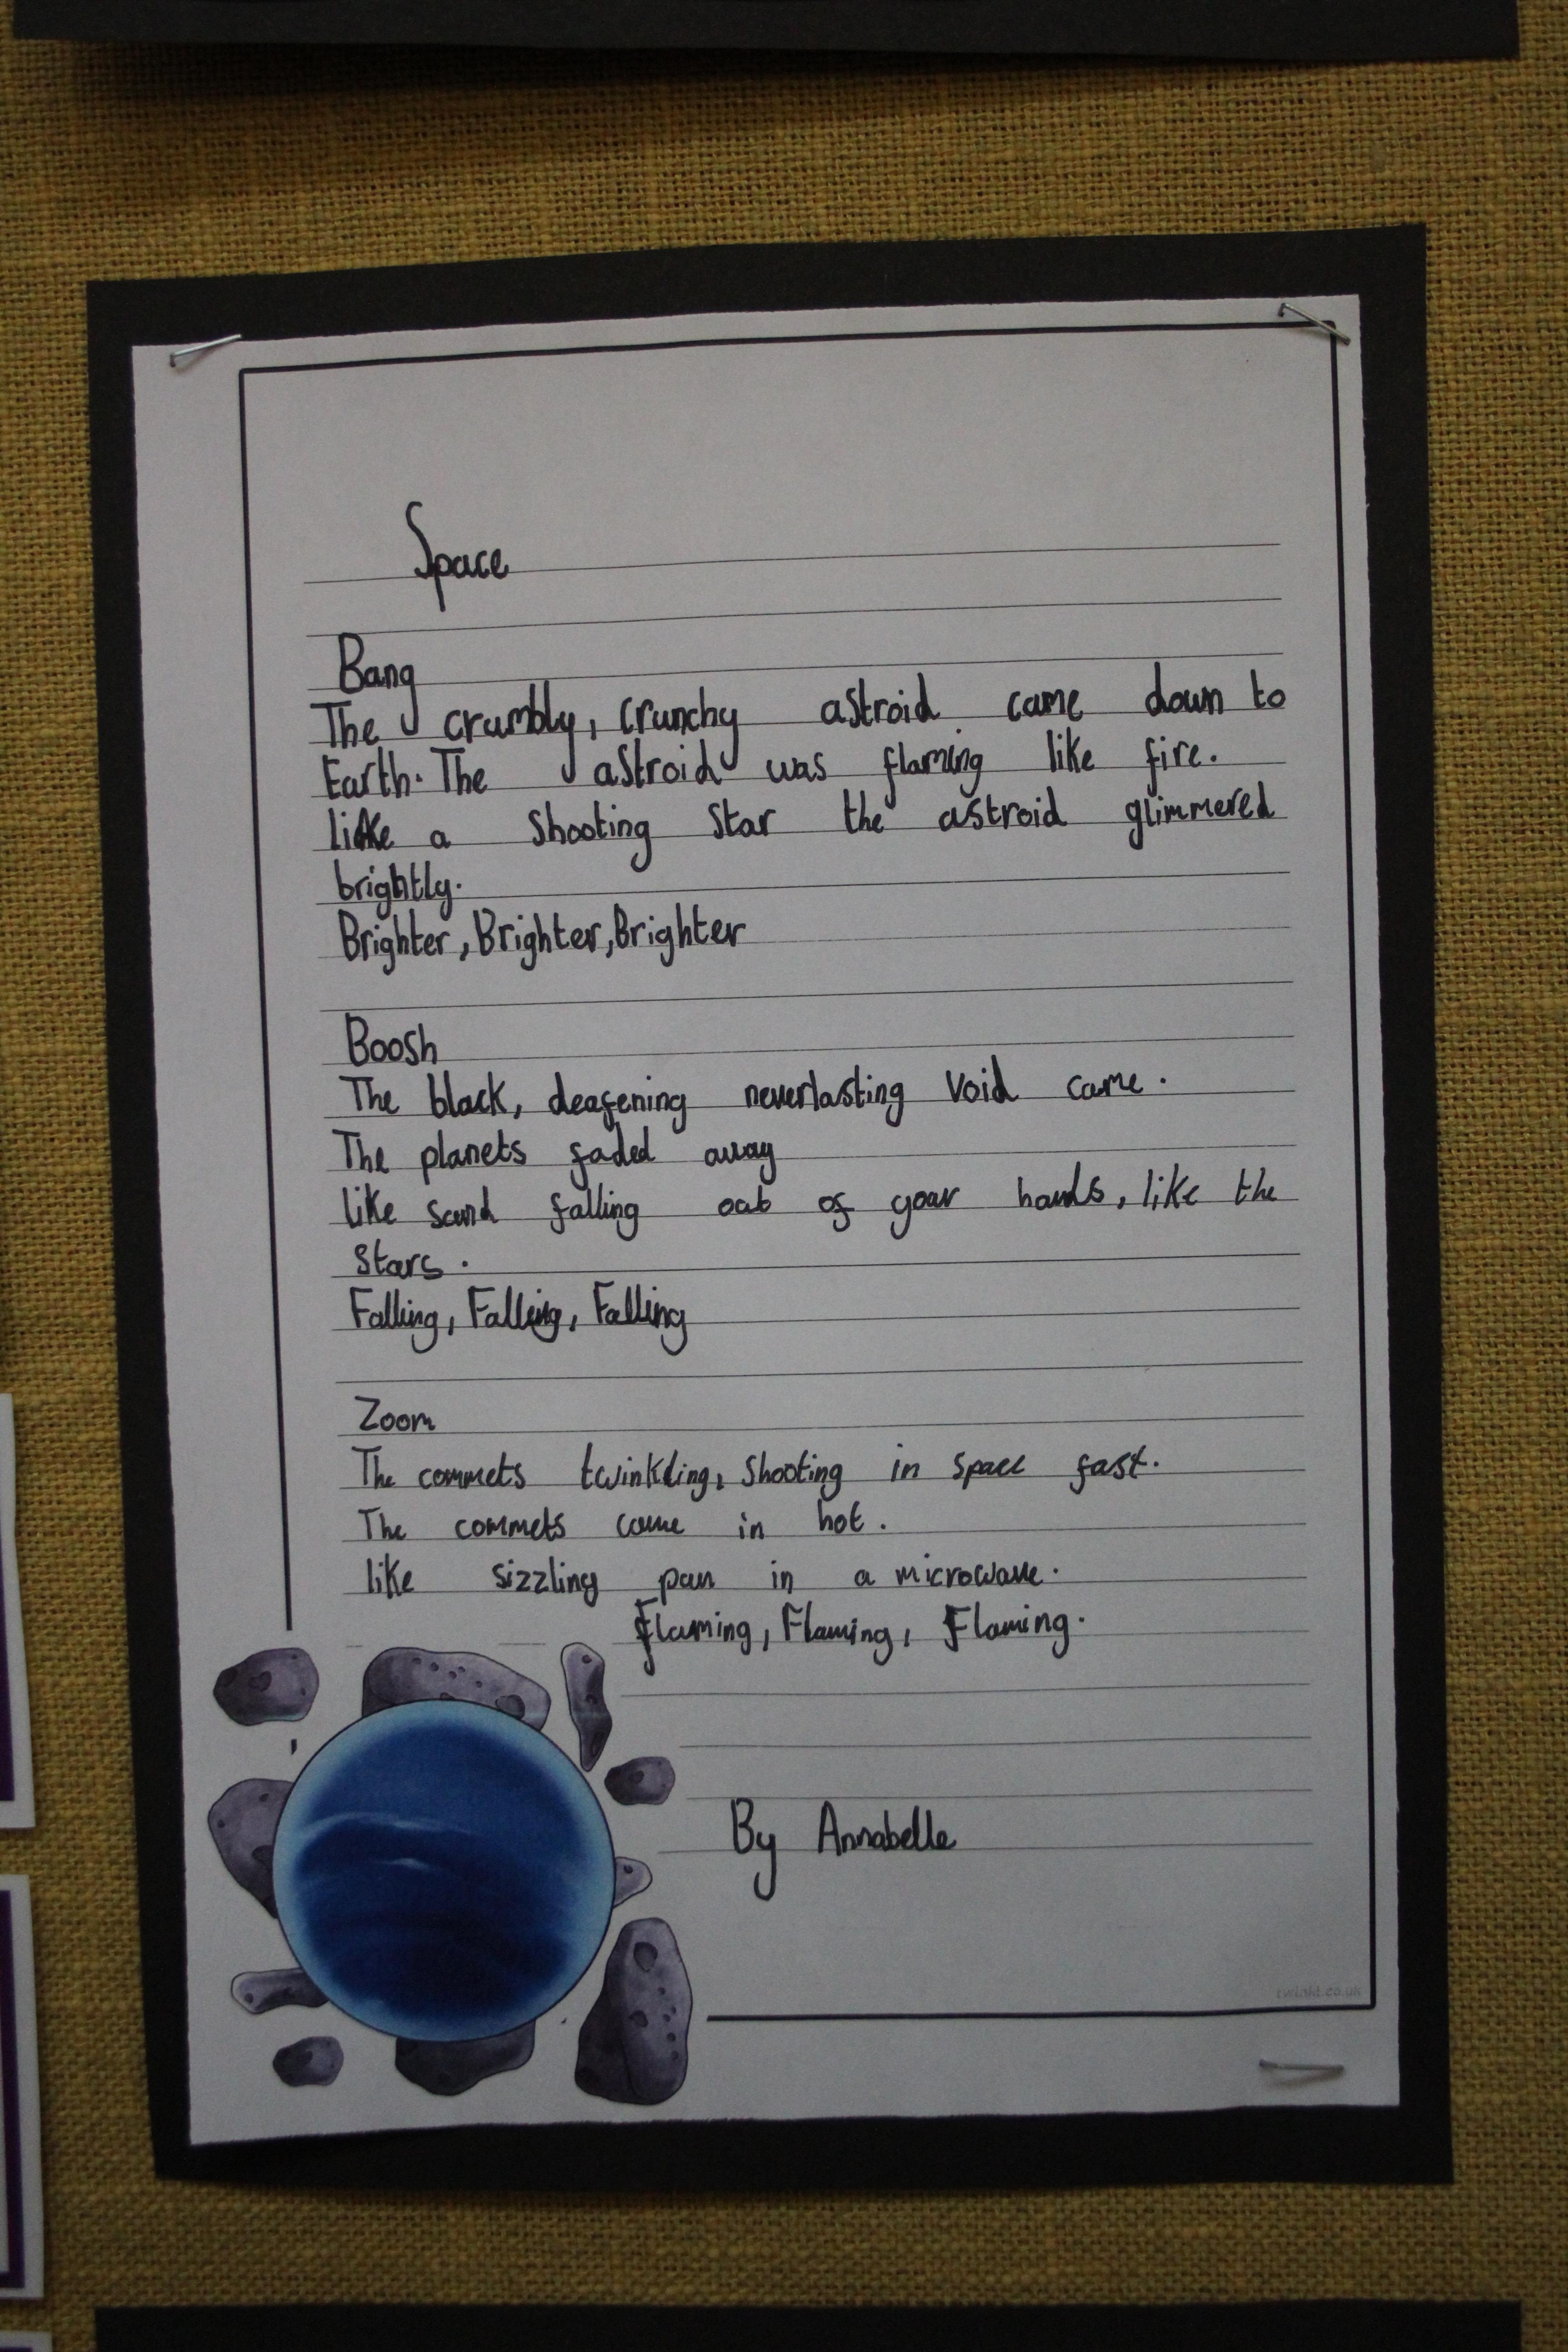 Space
Bang
The crumbly, crunchy astroid came down to
Earth. The astroid was flaming like fire.
like a shooting star the astroid glimmered
brightly.
Brighter, Brighter, Brighter
Boosh
The black, deafening neverlasting void came.
The planets faded away
like sand falling out of your hands, like the
stars.
Falling, Falling, Falling
Zoom
The commets twinkling, shooting in space fast.
The commets came in hot.
like sizzling pan in a microwave.
Flaming, Flaming, Flaming.
By Annabelle
twinkl.co.uk